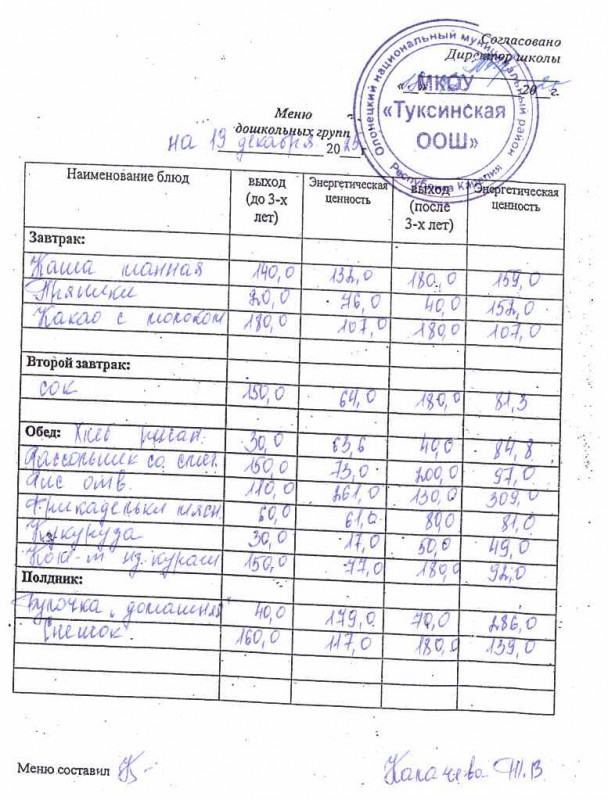 Согласовано
Директор школы
«   »   20   г.
Олонецкий национальный муниципальный район
МКОУ
«Туксинская
ООШ»
Республика Карелия
Меню
дошкольных групп
на 19 декабря 2025 г
Наименование блюд | выход (до 3-х лет) | Энергетическая ценность | выход (после 3-х лет) | Энергетическая ценность
Завтрак:
Каша манная 140,0 132,0 180,0 159,0
Пряники 20,0 76,0 40,0 152,0
Какао с молоком 180,0 107,0 180,0 107,0
Второй завтрак:
сок 150,0 64,0 180,0 81,3
Обед: Хлеб ржан. 30,0 63,6 40,0 84,8
Рассольник со смет. 150,0 73,0 200,0 97,0
Рис отв. 110,0 261,0 130,0 309,0
Фрикадельки мясн. 60,0 61,0 80,0 81,0
Кукуруза 30,0 17,0 50,0 49,0
Комп-т из кураги 150,0 77,0 180,0 92,0
Полдник:
Булочка "домашняя" 40,0 179,0 70,0 286,0
Снежок 160,0 117,0 180,0 139,0
Меню составил Карачева Т.В